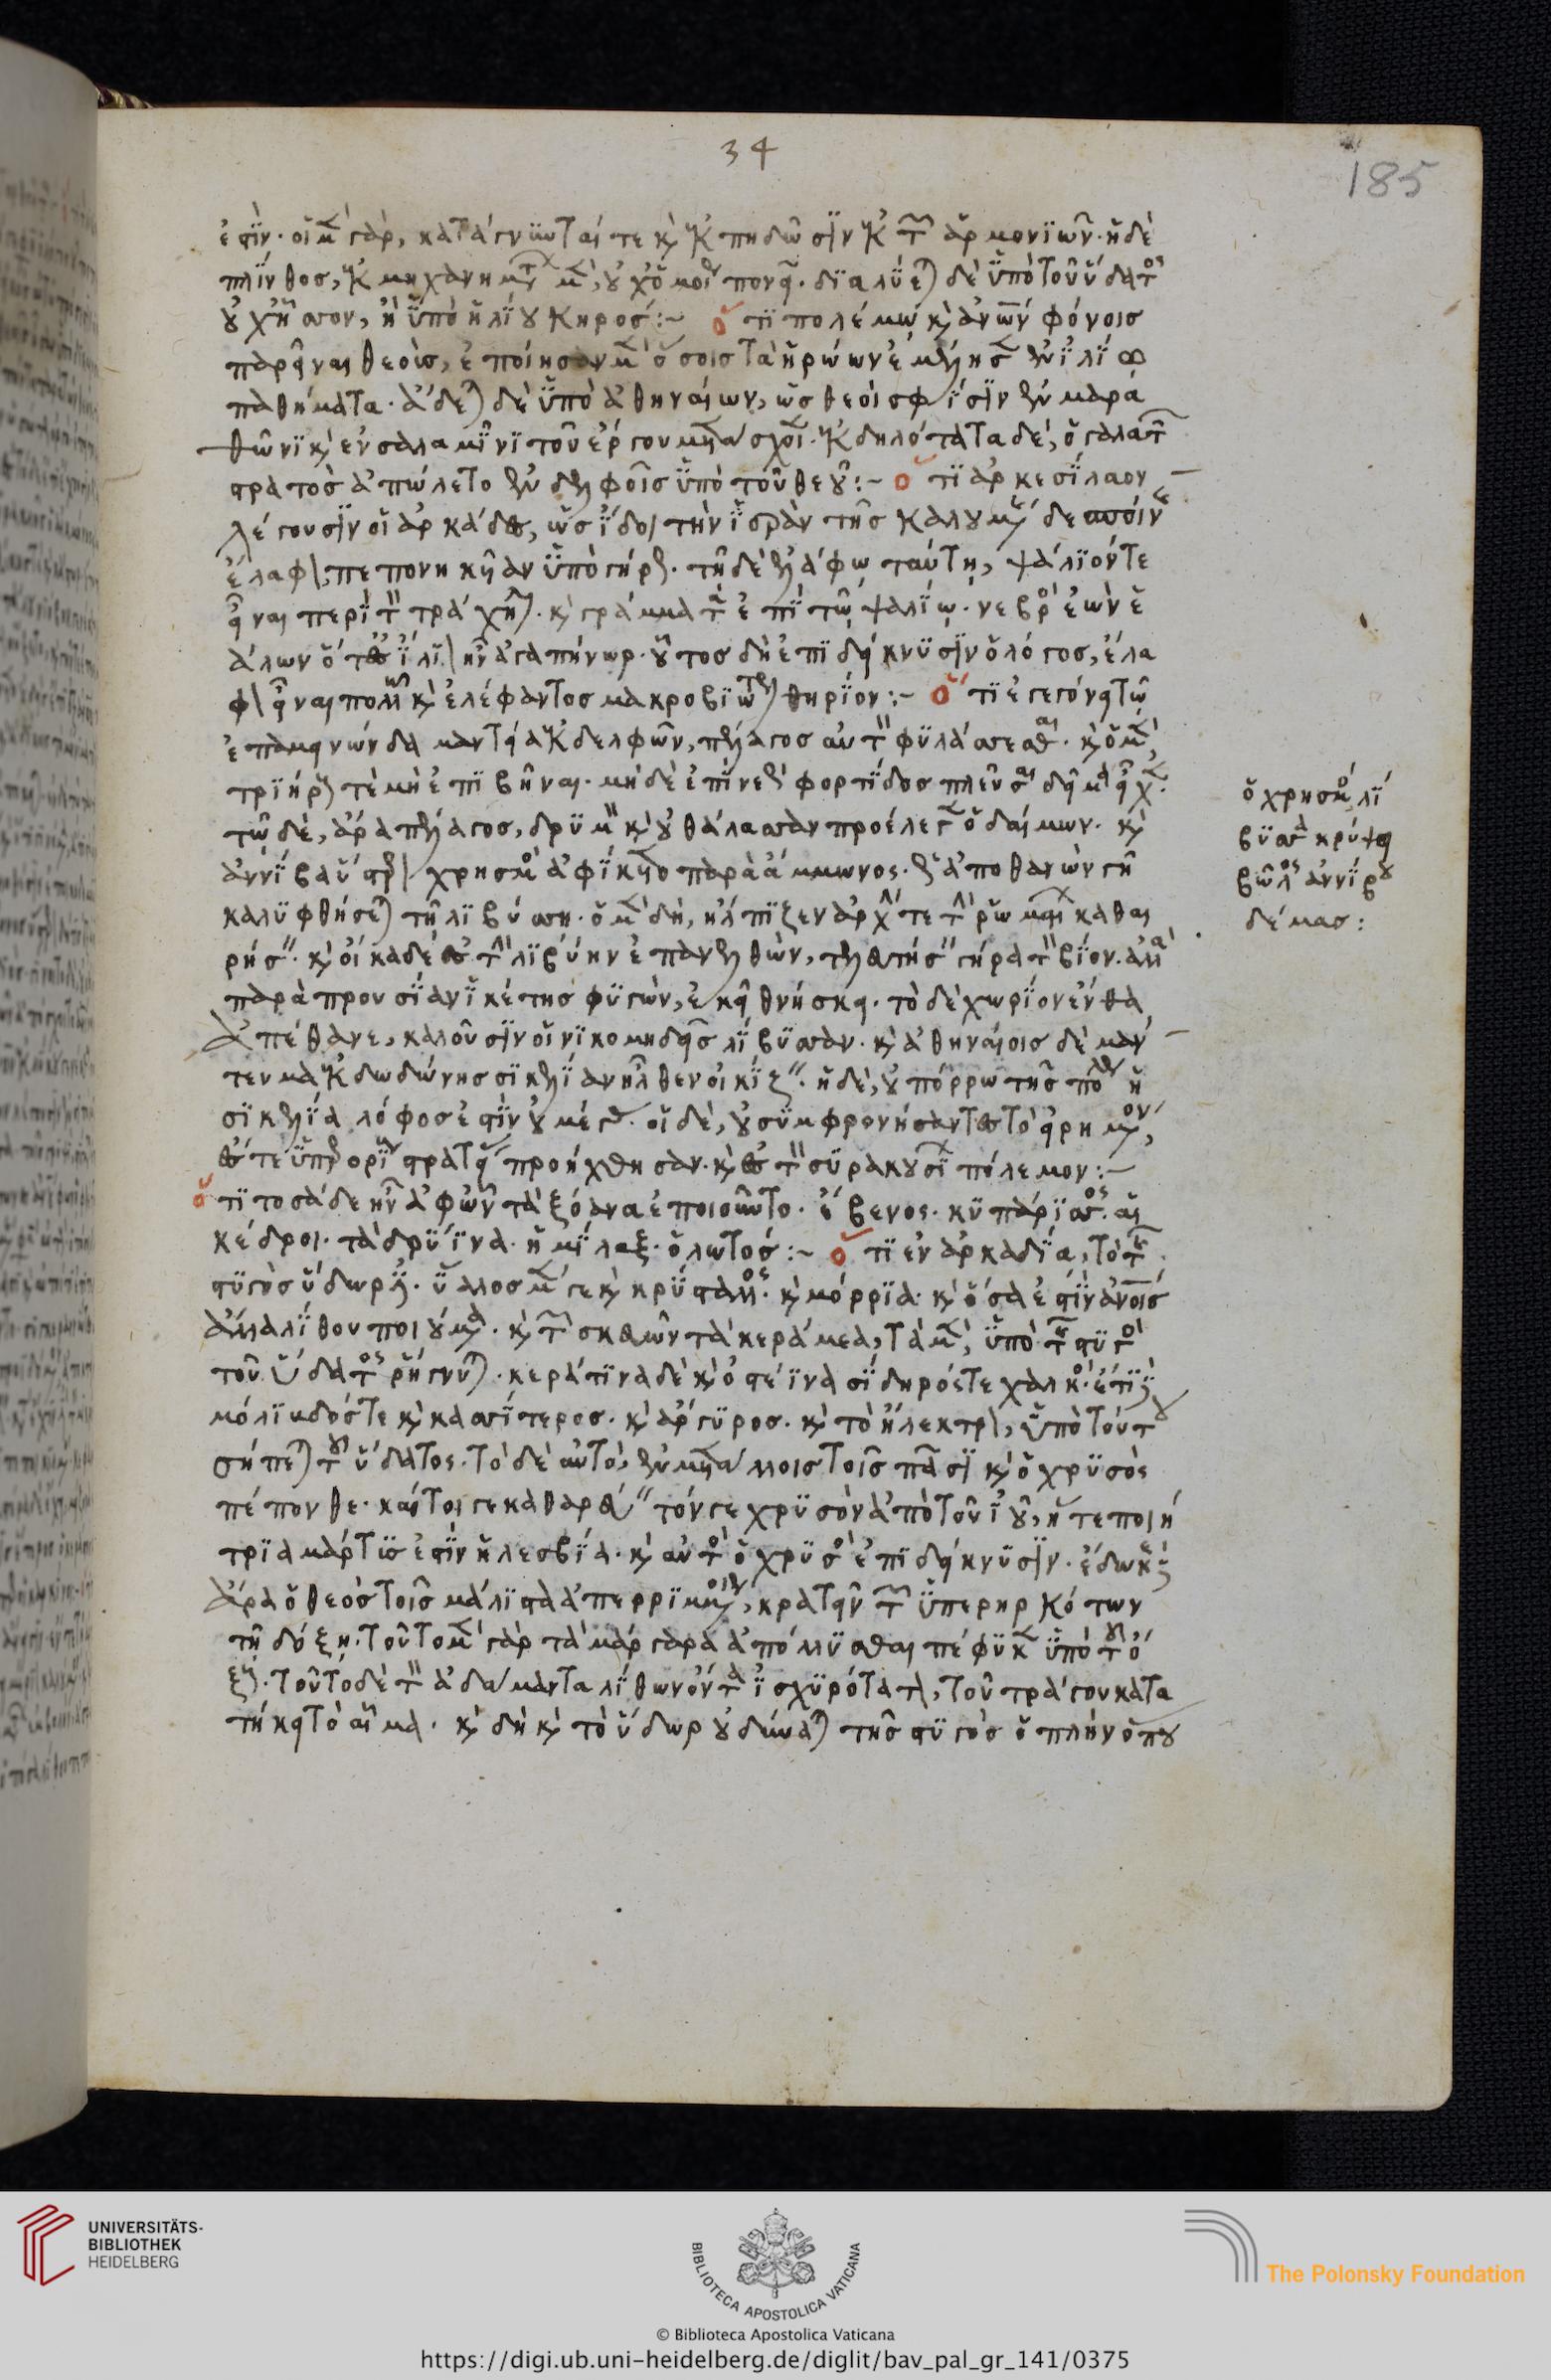 34
185
ἐστίν· οἱ μὲν γὰρ, κατάγνυνταί τε καὶ ἐκπηδῶσιν ἐκ τῶν ἁρμονιῶν· ἡ δὲ
πλίνθος, ἐκ μηχανημάτων μὲν, οὐχ ὁμοίως πονεῖ· διαλύεται δὲ ὑπὸ τοῦ ὕδατος
οὐχ ἧσσον, ἢ ὑπὸ ἡλίου κηρός:~ ὅτι πολέμῳ καὶ ἀνῶν φόνοις
παρεῖναι θεοὺς, ἐποίησαν μὲν ὅσοις τὰ ἡρώων ἐμέλησεν ἐν ἰλίω
παθήματα· ἄδεται δὲ ὑπὸ ἀθηναίων, ὡς θεοὶ σφίσιν ἐν μαρα
θῶνι καὶ ἐν σαλαμῖνι τοῦ ἔργου μετάσχοιεν· ἐκδηλότατα δὲ, ὁ γαλατῶν
στρατὸς ἀπώλετο ἐν δελφοῖς ὑπὸ τοῦ θεοῦ:~ ὅτι ἀρκεσίλαον
λέγουσιν οἱ ἀρκάδες, ὡς ἴδοι τὴν ἱερὰν τῆς καλουμένης δεσποίνης
ἔλαφον, πεπονηκυῖαν ὑπὸ γήρως· τῇ δὲ ἐλάφῳ ταύτῃ, ψάλιόν τε
εἶναι περὶ τὸν τράχηλον· καὶ γράμματα ἐπὶ τῷ ψαλίῳ· νεβρὸς ἐὼν ἑ
άλων ὅτ ἐς ἴλιον ἦν ἀγαπήνωρ· οὗτος δὴ ἐπιδείκνυσιν ὁ λόγος, ἔλα
φον εἶναι πολλῷ καὶ ἐλέφαντος μακροβιώτερον θηρίον:~ ὅτι ἐγεγόνει τῷ
ἐπαμεινώνδα μαντεία ἐκ δελφῶν, πέλαγος αὐτὸν φυλάσσεσθαι· καὶ ὁ μὲν,
τριήρους τὲ μὴ ἐπιβῆναι· μηδὲ ἐπὶ νεὼς φορτίδος πλεῦσαι δεῖμα εἶχεν·
τῷ δὲ, ἄρα πέλαγος, δρυμὸν καὶ οὐ θάλασσαν προέλεγεν ὁ δαίμων· καὶ
ἀννίβα ὕστερον χρησμὸς ἀφίκετο παρὰ ἄμμωνος· ὡς ἀποθανὼν γῆ
καλυφθήσεται τῇ λιβύσση· ὁ μὲν δὴ, ἤλπιζεν ἀρχήν τε τὴν ῥωμαίων καθαι
ρήσειν· καὶ οἴκαδε ἐς τὴν λιβύην ἐπανελθὼν, τελευτήσειν γήρα τὸν βίον· ἀλλὰ
παρὰ προυσίαν ἱκέτης φυγὼν, ἐκεῖ θνήσκει· τὸ δὲ χωρίον ἔνθα
ἀπέθανε, καλοῦσιν οἱ νικομηδεῖς λίβυσσαν· καὶ ἀθηναίοις δὲ μάν
τευμα ἐκ δωδώνης σικελίαν ἦλθεν οἰκίζειν· ἡ δὲ, οὐ πόρρω τῆς πόλεως ἡ
σικελία λόφος ἐστὶν οὐ μέγας· οἱ δὲ, οὐ συμφρονήσαντες τὸ εἰρημένον,
ἔς τε ὑπερορίους στρατείας προήχθησαν· καὶ ἐς τὸν συρακουσίων πόλεμον:~
ὅτι τοσάδε ἦν ἀφ ὧν τὰ ξόανα ἐποιοῦντο· ἔβενος· κυπάρισσος· αἱ
κέδροι· τὰ δρύϊνα· ἡ μίλαξ· ὁ λωτός:~ ὅτι ἐν ἀρκαδία, τὸ τῆς
στυγὸς ὕδωρ ἐστίν· ὕαλος μέν γε καὶ κρύσταλλος· καὶ μόρρια· καὶ ὅσα ἐστὶν ἀνοις
ἄλλα λίθου ποιούμενα· καὶ τῶν σκευῶν τὰ κεράμεα, τὰ μὲν, ὑπὸ τῆς στυγὸς
τοῦ ὕδατος ῥήγνυται· κεράτινα δὲ καὶ ὀστέϊνα σίδηρός τε χαλκός· ἔτι δὲ
μόλιβδός τε καὶ κασσίτερος· καὶ ἄργυρος· καὶ τὸ ἤλεκτρον, ὑπὸ τούτου
σήπεται τοῦ ὕδατος· τὸ δὲ αὐτὸ, ἐν μετάλλοις τοῖς πᾶσι καὶ ὁ χρυσὸς
πέπονθε· καίτοι γε καθαρεύειν τόν γε χρυσὸν ἀπὸ τοῦ ἰοῦ, ἥ τε ποιή
τρια μάρτυς ἐστὶν ἡ λεσβία· καὶ αὐτὸς ὁ χρυσὸς ἐπιδείκνυσιν· ἔδωκε δὲ
ἄρα ὁ θεὸς τοῖς μάλιστα ἀπερριμμένοις, κρατεῖν τῶν ὑπερηρκότων
τῇ δόξῃ· τοῦτο μὲν γὰρ τὰ μάργαρα ἀπόλλυσθαι πέφυκεν ὑπὸ τοῦ ὄ
ξους· τοῦτο δὲ τὸν ἀδάμαντα λίθων ὄντα ἰσχυρότατον, τοῦ τράγου κατα
τήκει τὸ αἷμα· καὶ δὴ καὶ τὸ ὕδωρ οὐ δύναται τῆς στυγὸς ὁπλὴν ἵππου
ὁ χρησμός λί
βυσσα κρύψει
βῶλος ἀννίβου
δέμας:
UNIVERSITÄTS-
BIBLIOTHEK
HEIDELBERG
BIBLIOTECA APOSTOLICA VATICANA
The Polonsky Foundation
© Biblioteca Apostolica Vaticana
https://digi.ub.uni-heidelberg.de/diglit/bav_pal_gr_141/0375